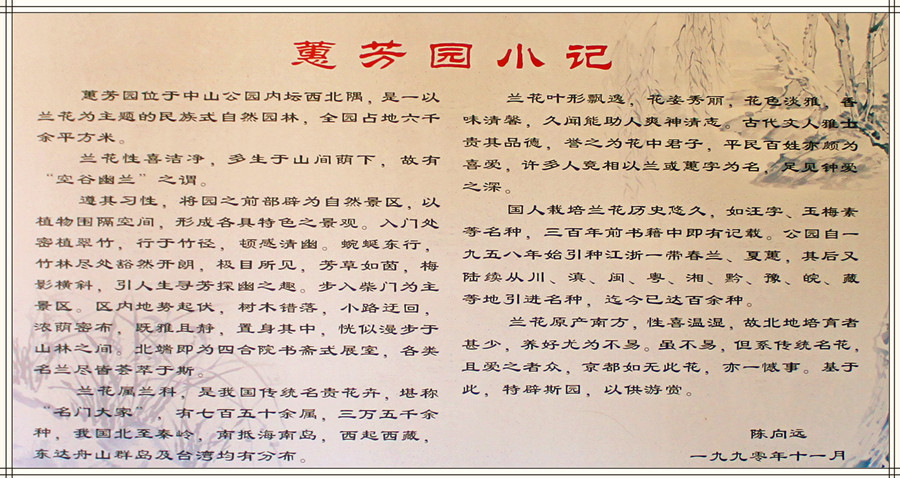 蕙芳园小记
蕙芳园位于中山公园内坛西北隅，是一以
兰花为主题的民族式自然园林，全园占地六千
余平方米。
兰花性喜洁净，多生于山间荫下，故有
“空谷幽兰”之谓。
遵其习性，将园之前部辟为自然景区，以
植物围隔空间，形成各具特色之景观。入门处
密植翠竹，行于竹径，顿感清幽。蜿蜒东行，
竹林尽处豁然开朗，极目所见，芳草如茵，梅
影横斜，引人生寻芳探幽之趣。步入柴门为主
景区。区内地势起伏，树木错落，小路迂回，
浓荫密布，既雅且静，置身其中，恍似漫步于
山林之间。北端即为四合院书斋式展室，各类
名兰尽皆荟萃于斯。
兰花属兰科，是我国传统名贵花卉，堪称
“名门大家”，有七百五十余属，三万五千余
种，我国北至秦岭，南抵海南岛，西起西藏，
东达舟山群岛及台湾均有分布。
兰花叶形飘逸，花姿秀丽，花色淡雅，香
味清馨，久闻能助人爽神清志。古代文人雅士
贵其品德，誉之为花中君子，平民百姓亦颇为
喜爱，许多人竞相以兰或蕙字为名，足见钟爱
之深。
国人栽培兰花历史悠久，如汪字、玉梅素
等名种，三百年前书籍中即有记载。公园自一
九五八年始引种江浙一带春兰、夏蕙，其后又
陆续从川、滇、闽、粤、湘、黔、豫、皖、藏
等地引进名种，迄今已达百余种。
兰花原产南方，性喜温湿，故北地培育者
甚少，养好尤为不易。虽不易，但系传统名花，
且爱之者众，京都如无此花，亦一憾事。基于
此，特辟斯园，以供游赏。
陈向远
一九九零年十一月